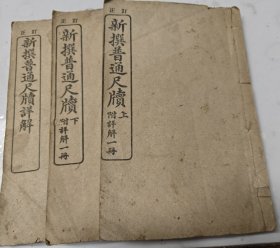 訂正
新撰普通尺牘上
附詳解一冊
訂正
新撰普通尺牘下
附詳解一冊
訂正
新撰普通尺牘詳解